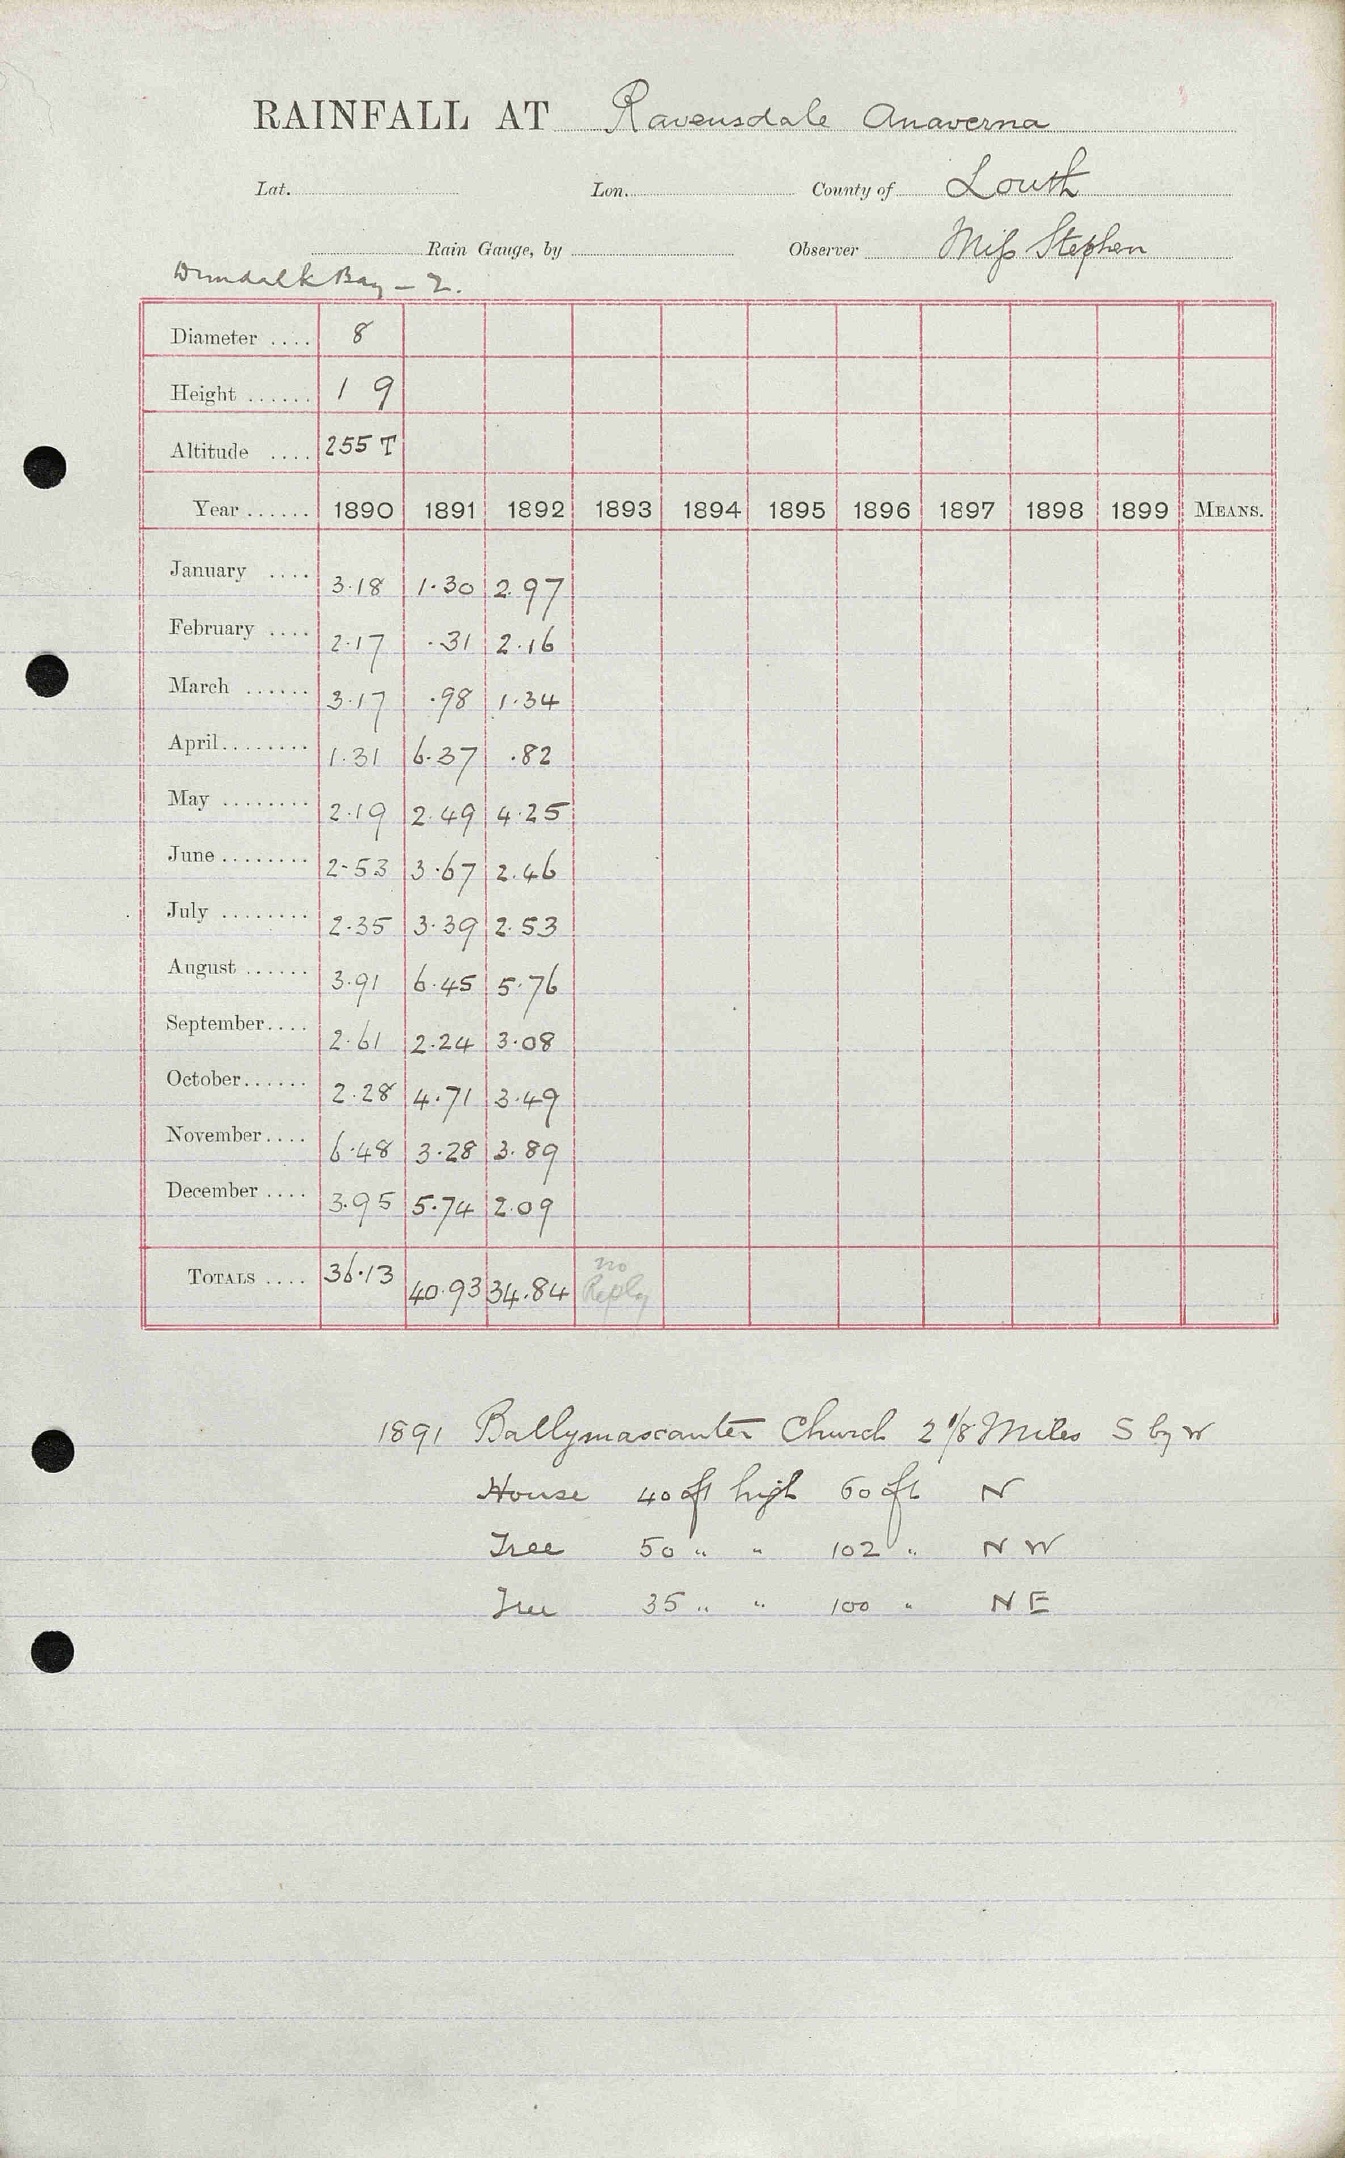 RAINFALL AT Ravensdale Anaverna
Lat. Lon. County of Louth
Rain Gauge, by Observer Miss Stephen
Dundalk Bay – 2.
Diameter .... 8
Height ...... 1 9
Altitude .... 255 T
Year ...... 1890 1891 1892 1893 1894 1895 1896 1897 1898 1899 MEANS.
January .... 3.18 1.30 2.97
February .... 2.17 .31 2.16
March ...... 3.17 .98 1.34
April........ 1.31 6.37 .82
May ........ 2.19 2.49 4.25
June ........ 2.53 3.67 2.46
July ........ 2.35 3.39 2.53
August ...... 3.91 6.45 5.76
September.... 2.61 2.24 3.08
October...... 2.28 4.71 3.49
November.... 6.48 3.28 3.89
December .... 3.95 5.74 2.09
TOTALS .... 36.13 40.93 34.84 no Reply
1891 Ballymascanter Church 2 1/8 Miles S by W
House 40 ft high 60 ft N
Tree 50 " " 102 " N W
Tree 35 " " 100 " N E